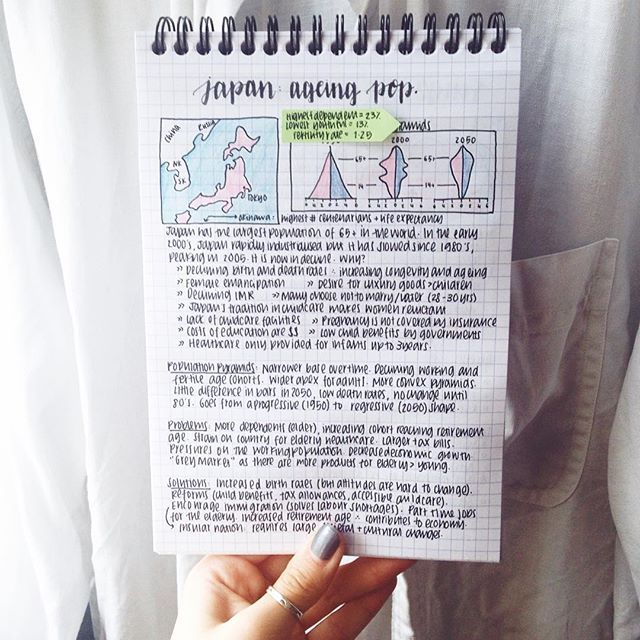 japan: ageing pop.
Highest dependent = 23%
Lowest youthful = 13%
Fertility rate = 1.25
China
Russia
NK
SK
Tokyo
→ Okinawa: highest # centenarians + life expectancy
2000
2050
65+
65+
14+
14+
Japan has the largest population of 65+ in the world. In the early
2000's, Japan rapidly industrialised but it has slowed since 1980's,
peaking in 2005. It is now in decline. Why?
» Declining birth and death rates ∴ increasing longevity and ageing
» Female emancipation » Desire for luxury goods > children
» Declining IMR » Many choose not to marry/later (28-30 yrs)
» Japan's tradition in childcare makes women reluctant
» Lack of childcare facilities » Pregnancy is not covered by insurance
» Costs of education are $$ » Low child benefits by governments
» Healthcare only provided for infants up to 3 years.
Population Pyramids: Narrower base over time. Declining working and
fertile age cohorts. Wider apex for adults. More convex pyramids.
Little difference in bars in 2050, low death rates, no change until
80's. Goes from a progressive (1950) to regressive (2050) shape.
Problems: More dependents (elder), increasing cohort reaching retirement
age. Strain on country for elderly healthcare. Larger tax bills.
Pressures on the working population. Decreased economic growth.
"Grey Market" as there are more products for elderly > young.
Solutions: Increased birth rates (but attitudes are hard to change).
Reforms (child benefits, tax allowances, accessible childcare).
Encourage immigration (solves labour shortages). Part time jobs
for the elderly. Increased retirement age ∴ contributes to economy.
↳ insular nation. requires large + cultural changes.